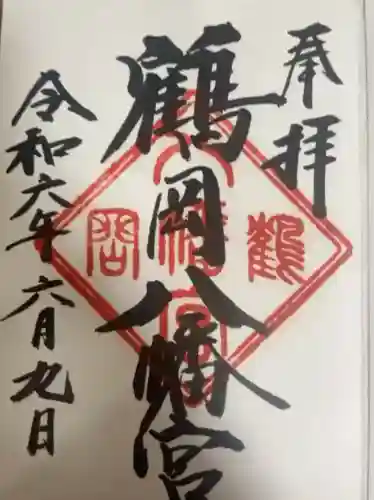 奉拝
鶴岡八幡宮
令和六年六月九日
鶴岡
八幡宮